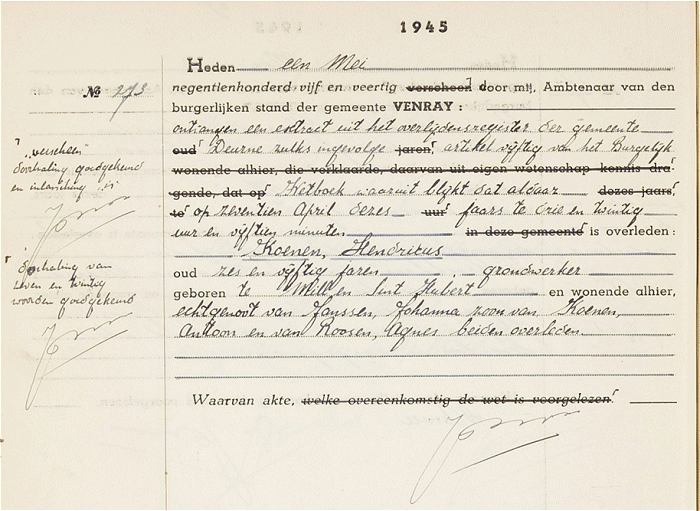 1945
Heden een Mei
№ 273
negentienhonderd vijf en veertig verscheen door mij, Ambtenaar van den
burgerlijken stand der gemeente VENRAY :
ontvangen een extract uit het overlijdensregister der gemeente
oud Deurne zulks ingevolge jaren, artikel vijftig van het Burgelijk
wonende alhier, die verklaarde, daarvan uit eigen wetenschap kennis dra-
gende, dat op Wetboek waaruit blijkt dat aldaar dezes jaars,
te op zeventien April dezes uur jaars te drie en twintig
uur en vijftien minuten in deze gemeente is overleden :
Koenen, Hendrikus
oud zes en vijftig jaren , grondwerker
geboren te Mill en Sint Hubert en wonende alhier,
echtgenoot van Janssen, Johanna zoon van Koenen,
Antoon en van Roosen, Agnes beiden overleden
Waarvan akte, welke overeenkomstig de wet is voorgelezen.
"verscheen"
doorhaling goedgekeurd
en inlassching
doorhaling van
zeven en twintig
woorden goedgekeurd